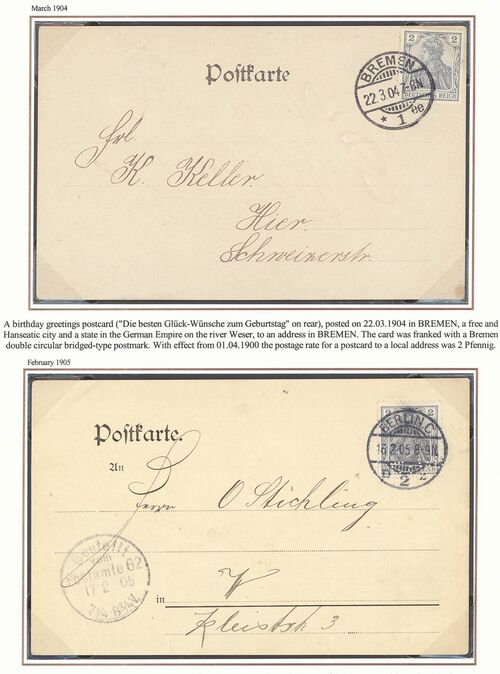 March 1904
Postkarte
2
DEUTSCHES REICH
BREMEN
22.3.04.7-8N
* 1 ee
Frl.
K. Keller.
Hier.
Schweizerstr.
A birthday greetings postcard ("Die besten Glück-Wünsche zum Geburtstag" on rear), posted on 22.03.1904 in BREMEN, a free and
Hanseatic city and a state in the German Empire on the river Weser, to an address in BREMEN. The card was franked with a Bremen
double circular bridged-type postmark. With effect from 01.04.1900 the postage rate for a postcard to a local address was 2 Pfennig.
February 1905
Postkarte.
2 2
BERLIN C.
16.2.05.8-9N.
2
An
Herrn O Stichling
Bestellt
vom
Postamte 62
17 2 05
7¼-8¾V.
in W
Kleistsh 3